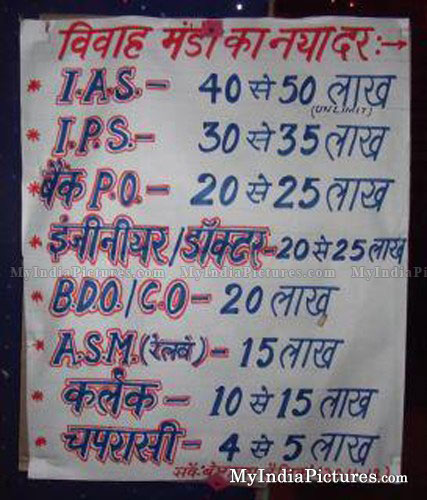 विवाह मंडी का नया दर :→
* I.A.S.- 40 से 50 लाख
(UNLIMIT)
* I.P.S.- 30 से 35 लाख
* बैंक P.O.- 20 से 25 लाख
* इंजीनीयर/डॉक्टर-20 से 25 लाख
MyIndiaPictures.com MyIndiaPictures.com MyIndiaPictures.com
* B.D.O./C.O- 20 लाख
* A.S.M.(रेलवे)- 15 लाख
* कर्लक- 10 से 15 लाख
* चपरासी- 4 से 5 लाख
MyIndiaPictures.com